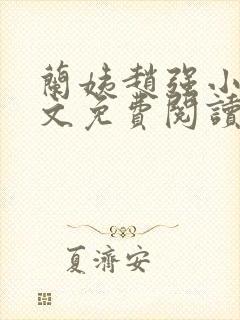 蘭姨趙强小
文免費閱讀
夏濟安